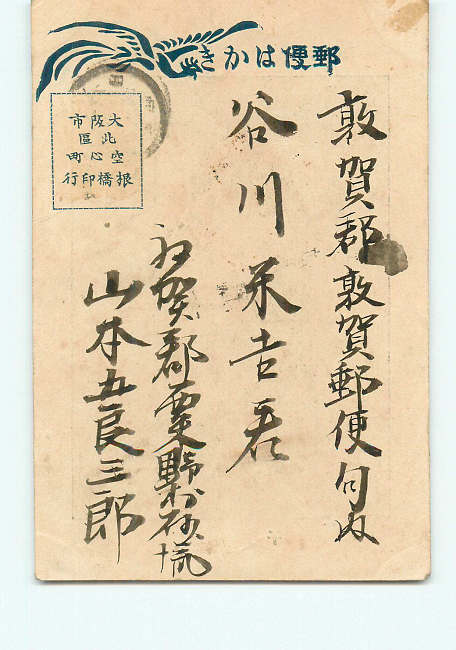 郵便はかき
大阪市
北區
空心町
根橋印行
敦賀郡敦賀郵便局内
谷川米吉君
敦賀郡粟野村砂流
山本五良三郎